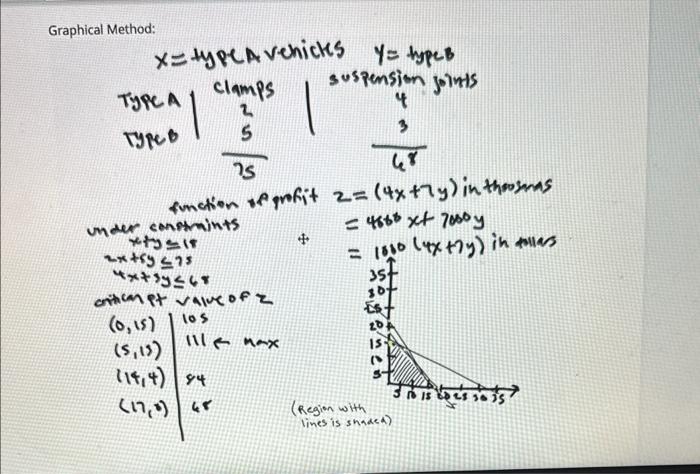 Graphical Method:
x = type A vehicles y = type B
clamps suspension joints
Type A 2 4
Type B 5 3
75 68
function of profit z = (4x + 7y) in thousands
under constraints = 4000x + 7000y
x + y ≤ 18 = 1000 (4x + 7y) in dollars
2x + 5y ≤ 75
4x + 3y ≤ 68
critical pt value of z
(0,15) 105
(5,13) 111 ← max
(14,4) 84
(17,0) 68
35
30
25
20
15
10
5
5 10 15 20 25 30 35
(Region with
lines is shaded)